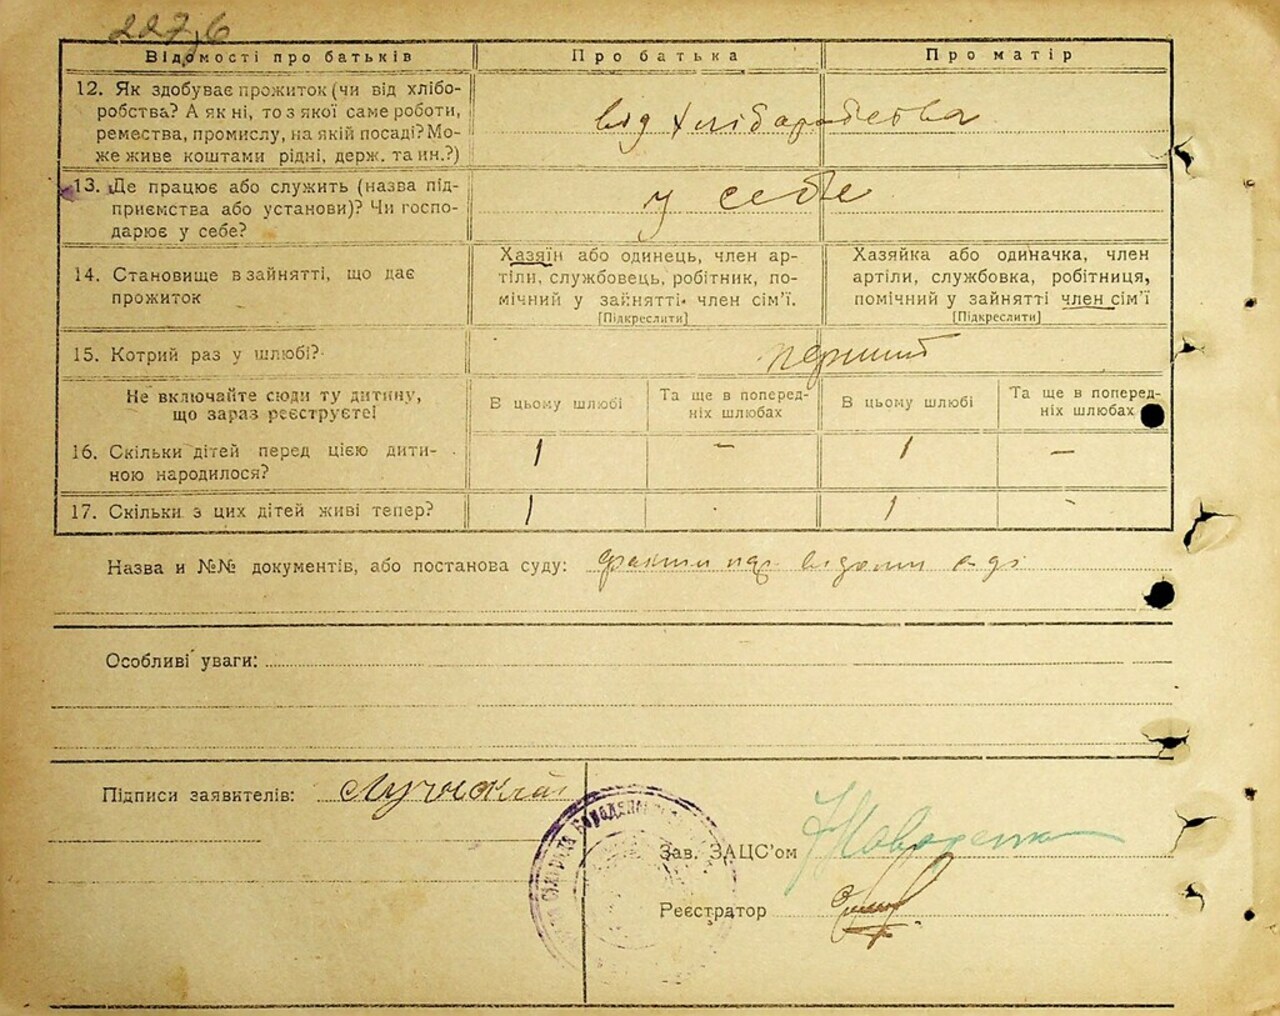 227,6
Відомості про батьків Про батька Про матір
12. Як здобуває прожиток (чи від хлібо-
робства? А як ні, то з якої саме роботи,
ремества, промислу, на якій посаді? Мо-
же живе коштами рідні, держ. та ин.?)
від хлібаробства
13. Де працює або служить (назва під-
приємства або установи)? Чи госпо-
дарює у себе?
у себе
14. Становище в зайнятті, що дає
прожиток
Хазяїн або одинець, член ар-
тіли, службовець, робітник, по-
мічний у зайнятті член сім'ї.
[Підкреслити]
Хазяйка або одиначка, член
артіли, службовка, робітниця,
помічний у зайнятті член сім'ї
[Підкреслити]
15. Котрий раз у шлюбі?
перший
Не включайте сюди ту дитину,
що зараз реєструєте!
В цьому шлюбі
Та ще в поперед-
ніх шлюбах
В цьому шлюбі
Та ще в поперед-
ніх шлюбах
16. Скільки дітей перед цією дити-
ною народилося?
1 – 1 –
17. Скільки з цих дітей живі тепер?
1 1 -
Назва и №№ документів, або постанова суду:
Особливі уваги:
Підписи заявителів:
Зав. ЗАЦС'ом
Реєстратор